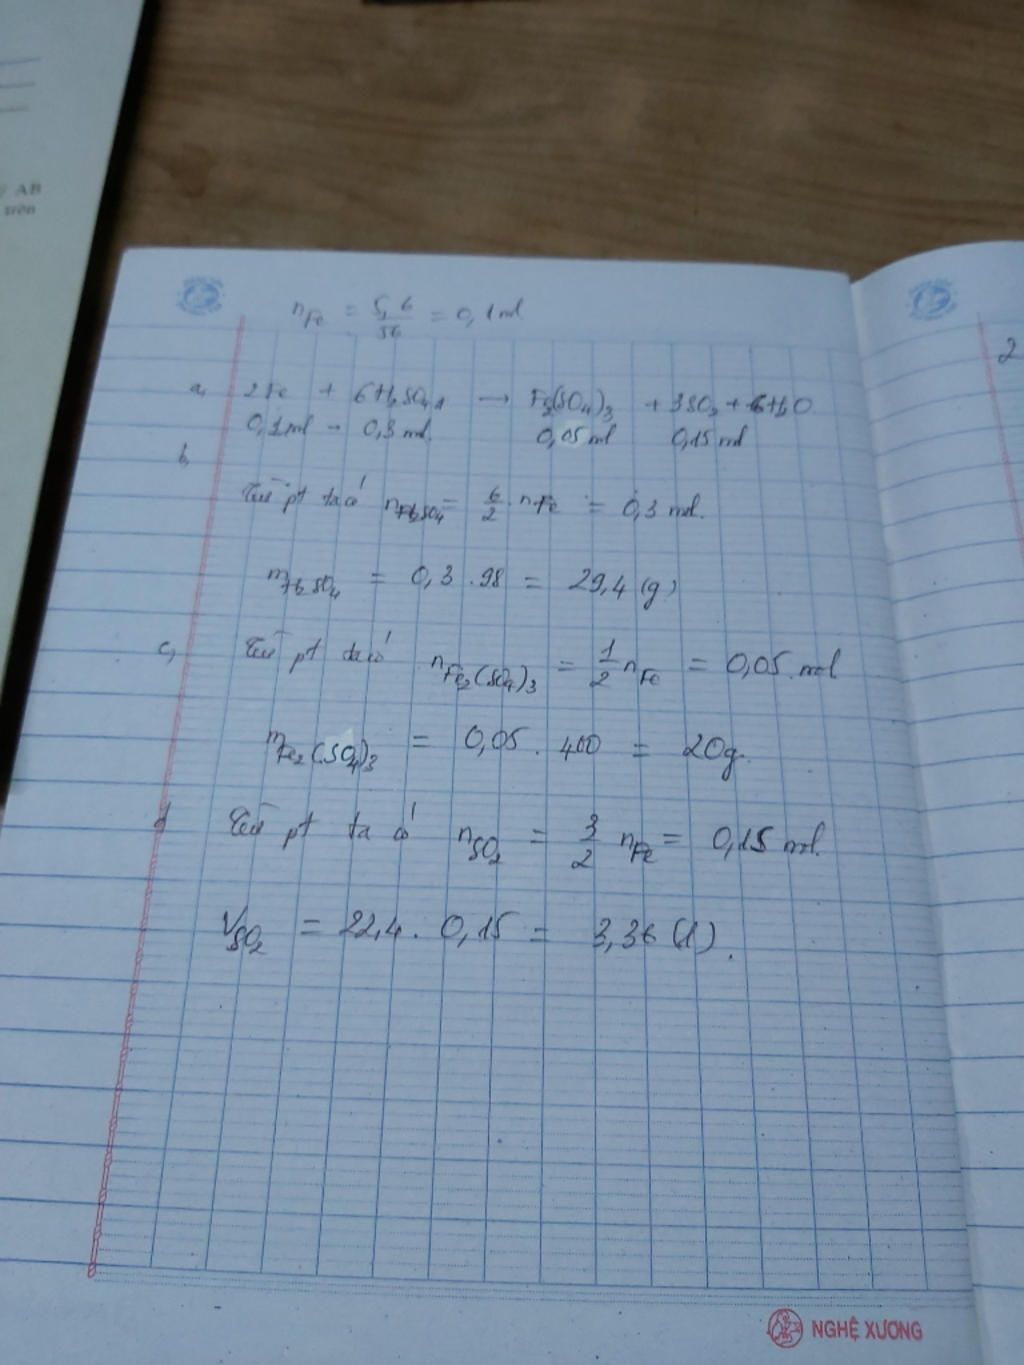 AB
trên
n_Fe = 5,6/56 = 0,1 ml
2
a, 2Fe + 6H₂SO₄ → Fe₂(SO₄)₃ + 3SO₂ + 6H₂O
0,1 ml - 0,3 ml 0,05 ml 0,15 ml
b,
Từ pt ta có n_H₂SO₄ = 6/2 . n_Fe = 0,3 mol.
m_H₂SO₄ = 0,3 . 98 = 29,4 (g)
c, Từ pt ta có n_Fe₂(SO₄)₃ = 1/2 n_Fe = 0,05 mol
m_Fe₂(SO₄)₃ = 0,05 . 400 = 20g.
d Từ pt ta có n_SO₂ = 3/2 n_Fe = 0,15 mol.
V_SO₂ = 22,4 . 0,15 = 3,36 (l).
NGHỆ XƯƠNG